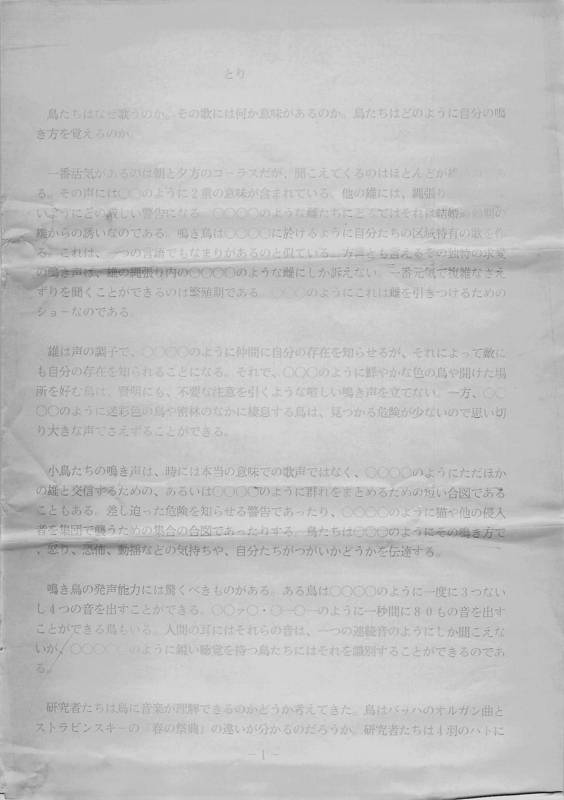 とり
鳥たちはなぜ歌うのか。その歌には何か意味があるのか。鳥たちはどのように自分の鳴
き方を覚えるのか。
一番活気があるのは朝と夕方のコーラスだが、聞こえてくるのはほとんどが
る。その声には〇〇のように2重の意味が含まれている。他の雄には、縄張り
いようにとの厳しい警告になる。〇〇〇〇のような雌たちに
雄からの誘いなのである。鳴き鳥は〇〇〇〇に於けるように自分たちの区域特有の歌を作
る。これは、一つの言語でもなまりがあるのと似ている。方言とも言えるその独特の求愛
の鳴き声は、雄の縄張り内の〇〇〇〇のような雌にしか訴えない。一番元気で複雑なさえ
ずりを聞くことができるのは繁殖期である。〇〇〇のようにこれは雌を引きつけるための
ショーなのである。
雄は声の調子で、〇〇〇〇のように仲間に自分の存在を知らせるが、それによって敵に
も自分の存在を知られることになる。それで、〇〇〇のように鮮やかな色の鳥や開けた場
所を好む鳥は、賢明にも、不要な注意を引くような喧しい鳴き声を立てない。一方、〇〇
〇〇のように迷彩色の鳥や密林のなかに棲息する鳥は、見つかる危険が少ないので思い切
り大きな声でさえずることができる。
小鳥たちの鳴き声は、時には本当の意味での歌声ではなく、〇〇〇〇のようにただほか
の雄と交信するための、あるいは〇〇〇〇のように群れをまとめるための短い合図である
こともある。差し迫った危険を知らせる警告であったり、〇〇〇〇のように猫や他の侵入
者を集団で襲うための集合の合図であったりする。鳥たちは〇〇〇のようにその鳴き方で
、怒り、恐怖、動揺などの気持ちや、自分たちがつがいかどうかを伝達する。
鳴き鳥の発声能力には驚くべきものがある。ある鳥は〇〇〇〇のように一度に3つない
し4つの音を出すことができる。〇〇ヶ〇・〇一〇一のように一秒間に80もの音を出す
ことができる鳥もいる。人間の耳にはそれらの音は、一つの連続音のようにしか聞こえな
いが、〇〇〇〇〇のように鋭い聴覚を持つ鳥たちにはそれを識別することができるのであ
る。
研究者たちは鳥に音楽が理解できるのかどうか考えてきた。鳥はバッハのオルガン曲と
ストラビンスキーの「春の祭典」の違いが分かるのだろうか。研究者たちは4羽のハトに
－1－